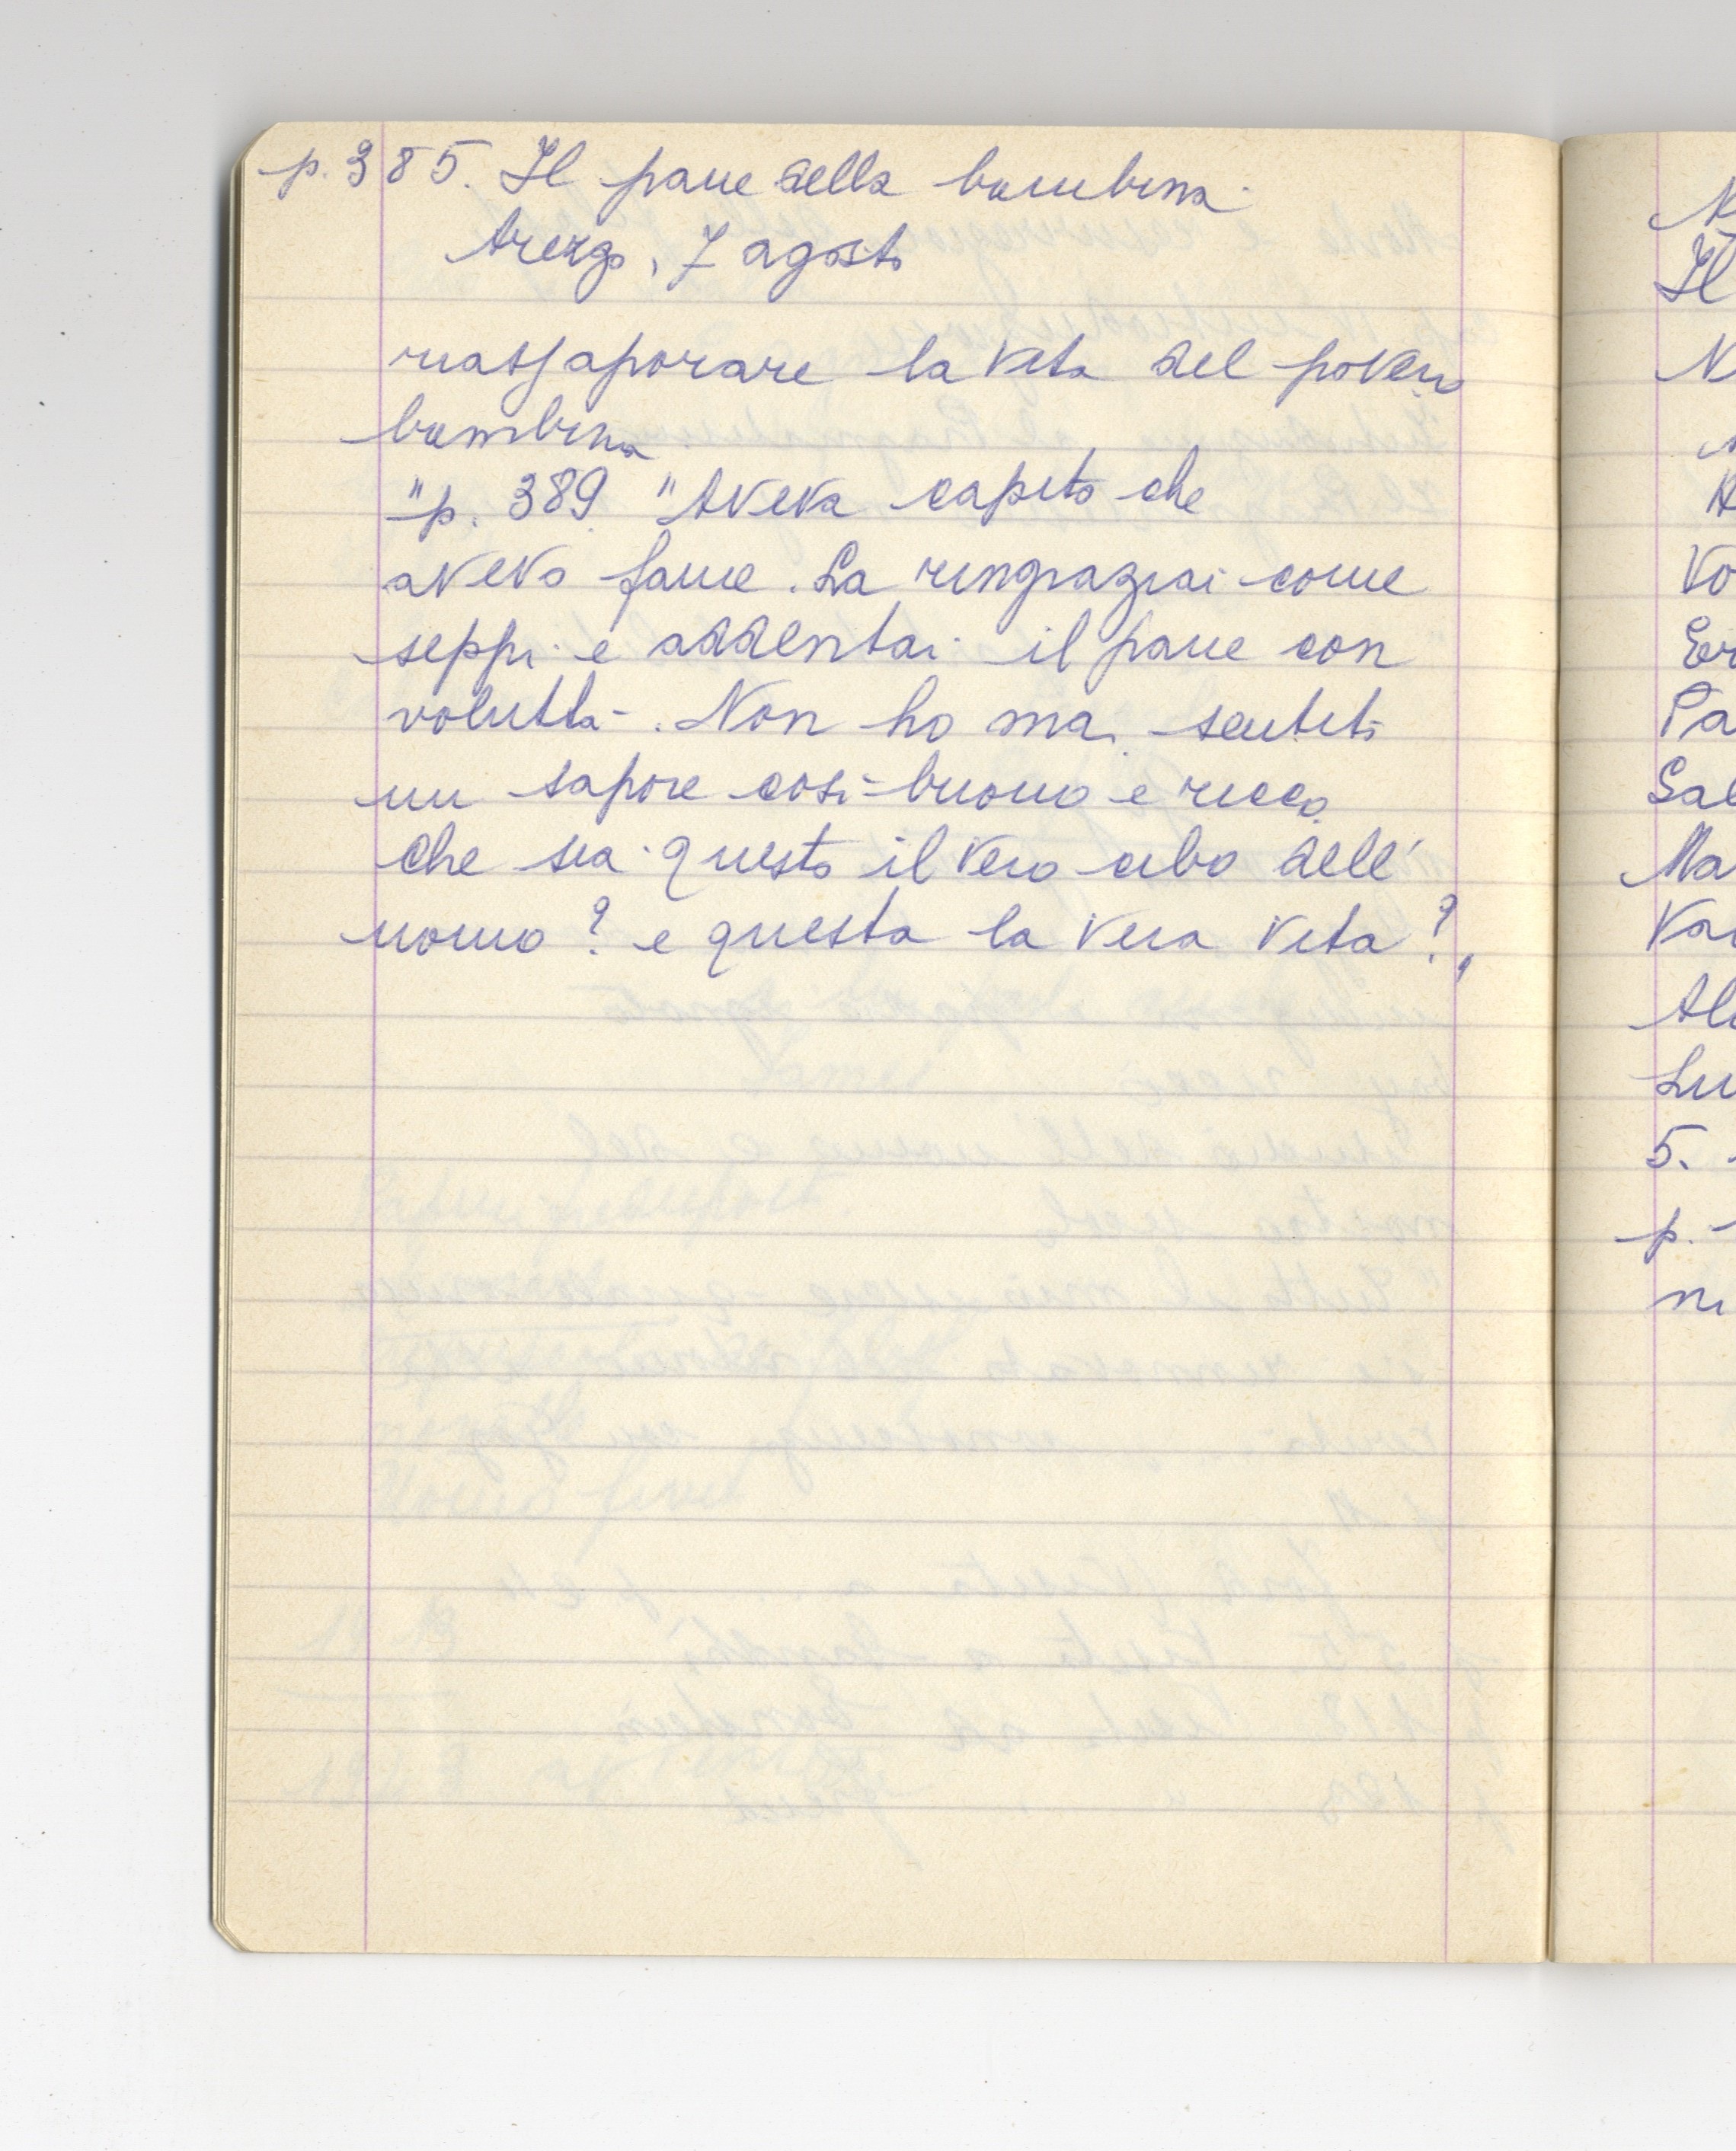 p. 385. Il pane della bambina
Arezzo, 7 agosto
riassaporare la vita del povero
bambina
"p. 389 "Aveva capito che
avevo fame. La ringraziai come
seppi e addentai il pane con
voluttà. Non ho mai sentito
un sapore così buono e ricco
che sia questo il vero cibo dell'
uomo? e questa la vera vita?"
Il
Vo
Pa
Sal
Ma
5.
p.